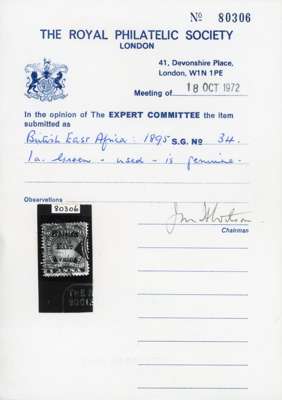 No 80306
THE ROYAL PHILATELIC SOCIETY
LONDON
41, Devonshire Place,
London, W1N 1PE
Meeting of 18 OCT 1972
In the opinion of The EXPERT COMMITTEE the item
submitted as
British East Africa: 1895 S.G. No 34.
1a. Green - used - is genuine.
Observations
80306
Chairman